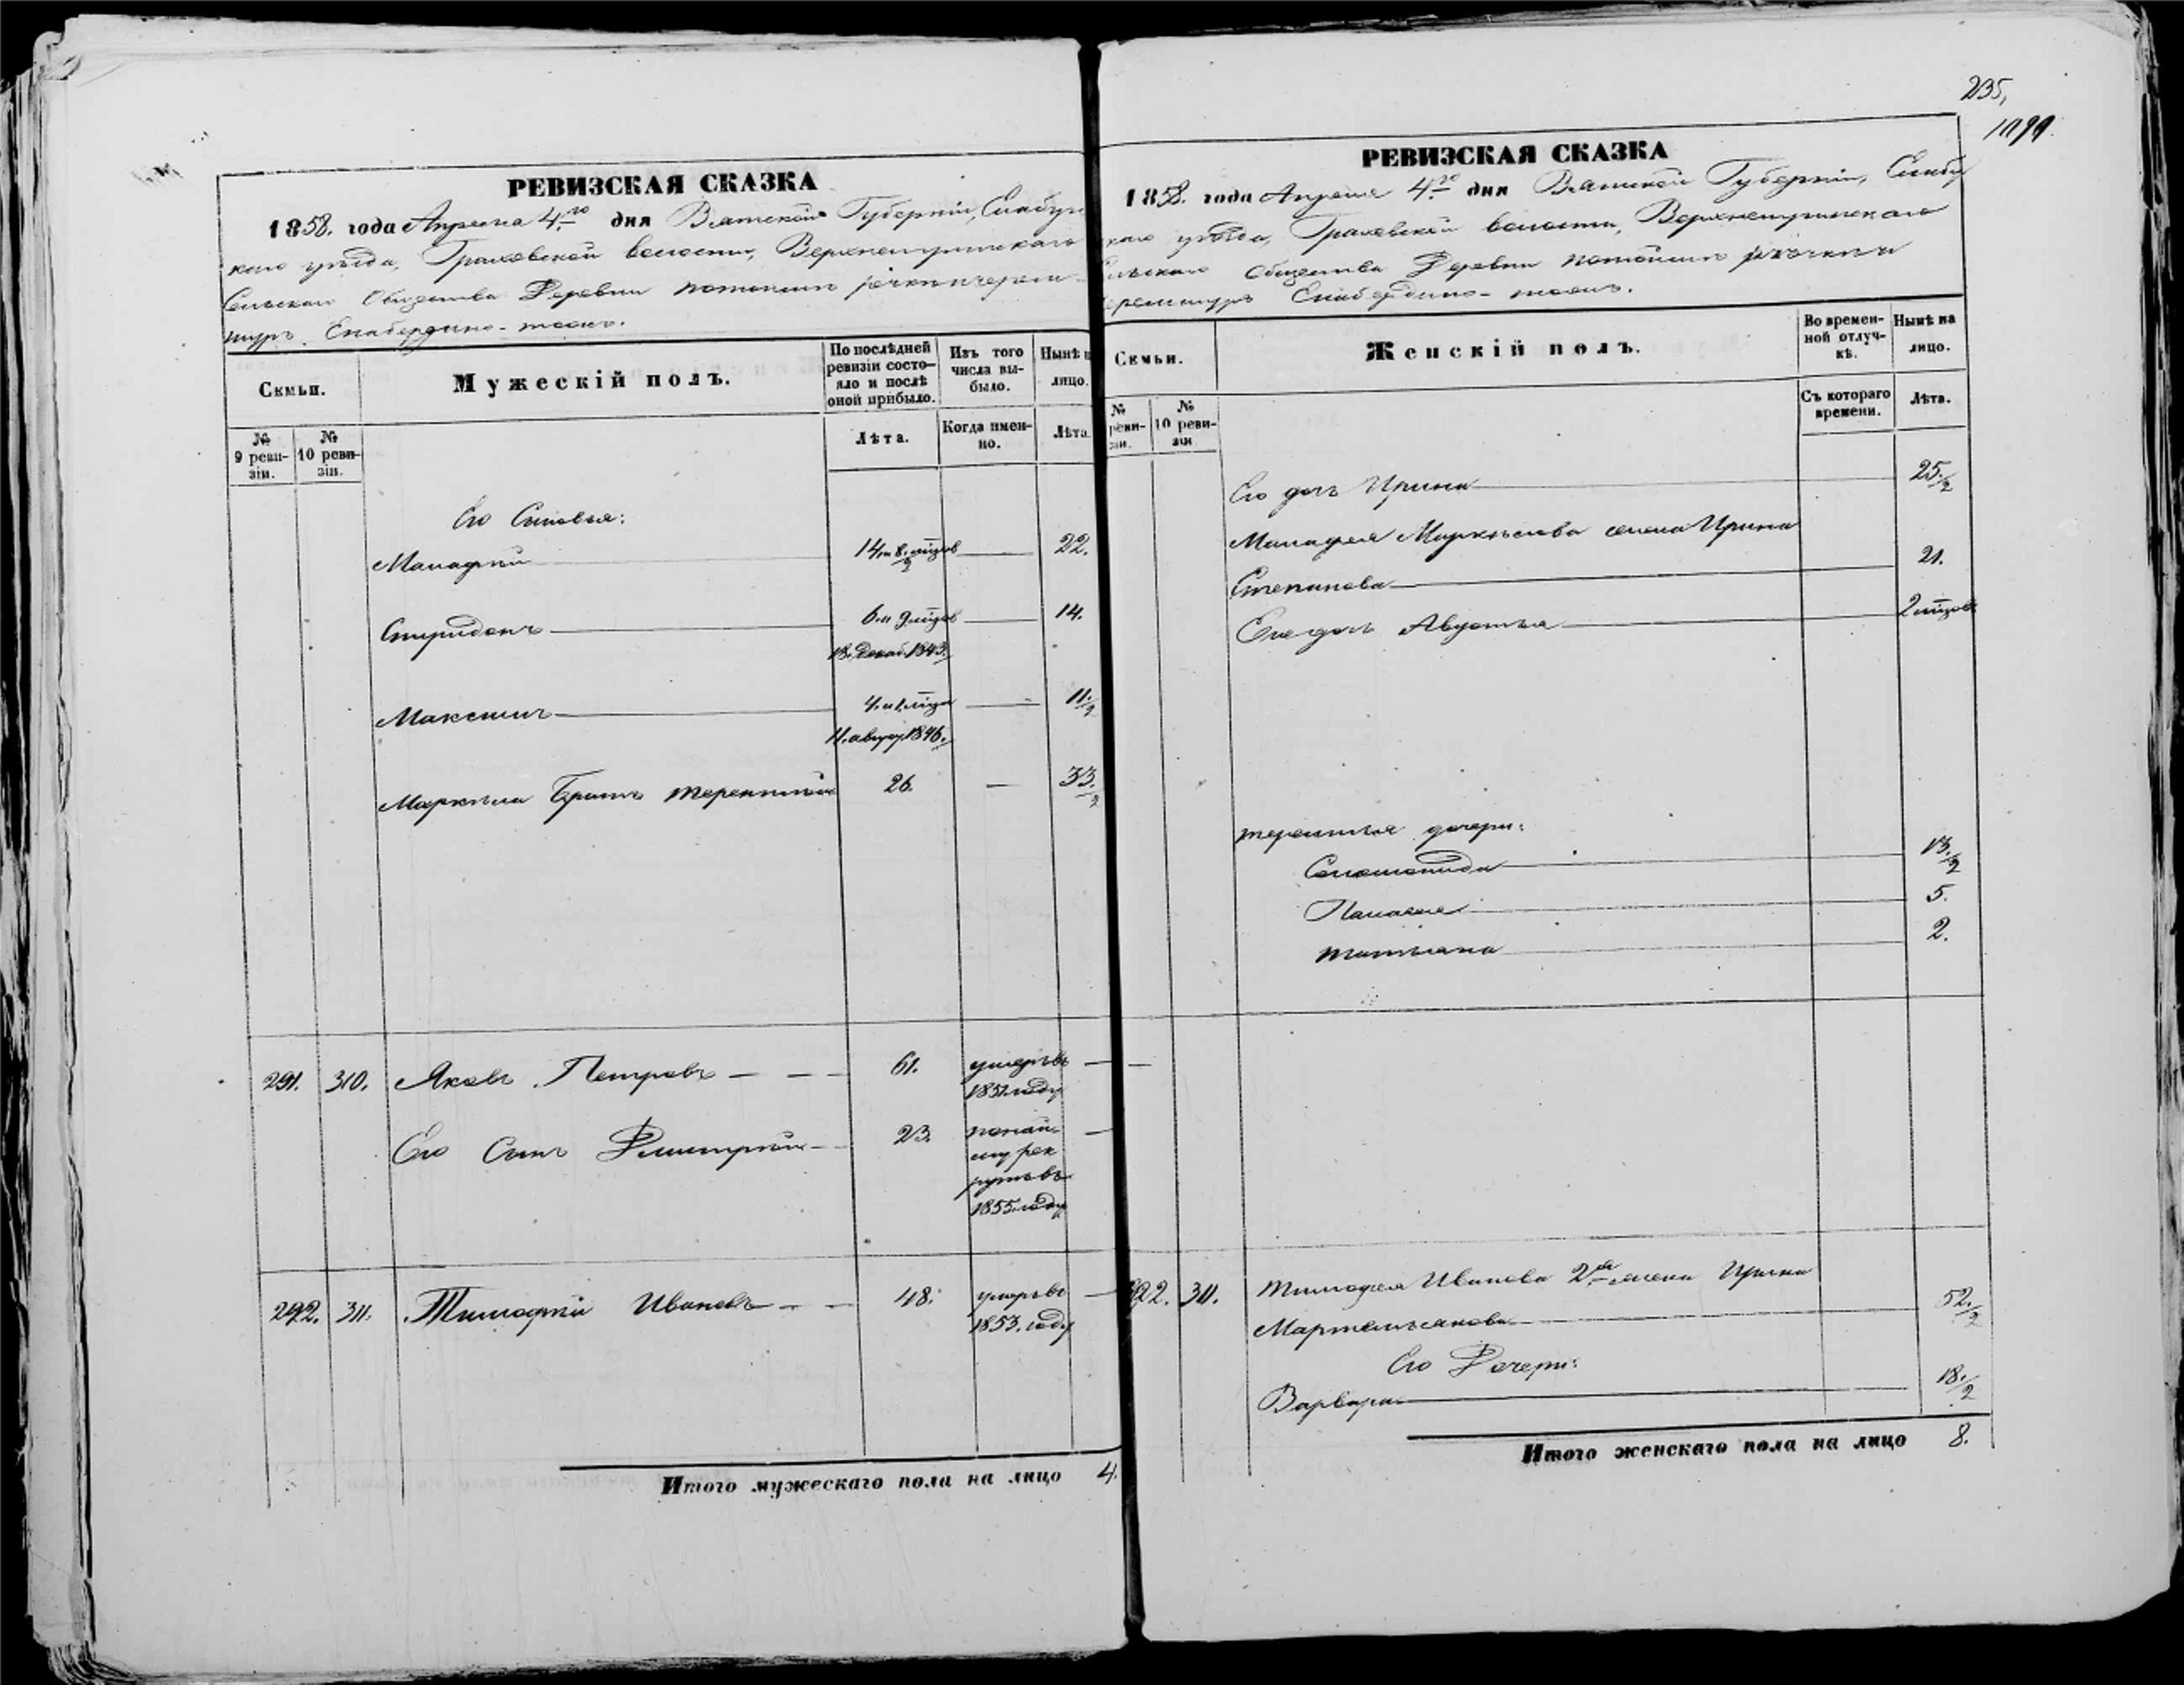 235,
1099.
РЕВИЗСКАЯ СКАЗКА
1858. года Апреля 4.го дня Вятской Губерніи, Елабуж
каго уѣзда, Граховской волости,
Сельскаго Общества Деревни потоймъ рѣчки
Семьи.
Мужескій полъ.
По послѣдней ревизіи состо-
яло и послѣ
оной прибыло.
Изъ того
числа вы-
было.
Нынѣ н
лицо.
№
9 реви-
зіи.
№
10 реви-
зіи.
Лѣта.
Когда имен-
но.
Лѣта.
Его Сыновья:
Малафѣй 14 и 8. мцов 22.
Спиридонъ 6 и 9 мцов 14.
18. Декаб. 1843.
Максимъ 4. и 1. мца 11 1/2
11. август 1846.
Маркѣла братъ терентій 26. — 33. 1/2
291. 310. Яковъ Петровъ 61. умеръ въ
1851 году
Его Сынъ Дмитрій 23. по най-
му рек
рутъ въ
1855 году
292. 311. Тимофѣй Ивановъ 48. умеръ въ
1853. году
Итого мужескаго пола на лицо 4.
РЕВИЗСКАЯ СКАЗКА
1858. года Апреля 4.го дня Вятской Губерніи, Елабу
каго уѣзда, Граховской волости,
Сельскаго Общества Деревни потоймъ рѣчкѣ
Семьи.
Женскій полъ.
Во времен-
ной отлуч-
кѣ.
Нынѣ на
лицо.
№
реви-
зіи.
№
10 реви-
зіи
Съ котораго
времени.
Лѣта.
Его дочь Ирина 25. 1/2
Малафея Маркѣлова жена Ирина
Степанова 21.
Ея дочь Авдотья 2 мцов
терентья дочери:
Соломонида 13. 1/2
Палагея 5.
татьяна 2.
292. 311. Тимофея Иванова 2.я жена Ирина
52. 1/2
Его Дочери:
Варвара 18. 1/2
Итого женскаго пола на лицо 8.